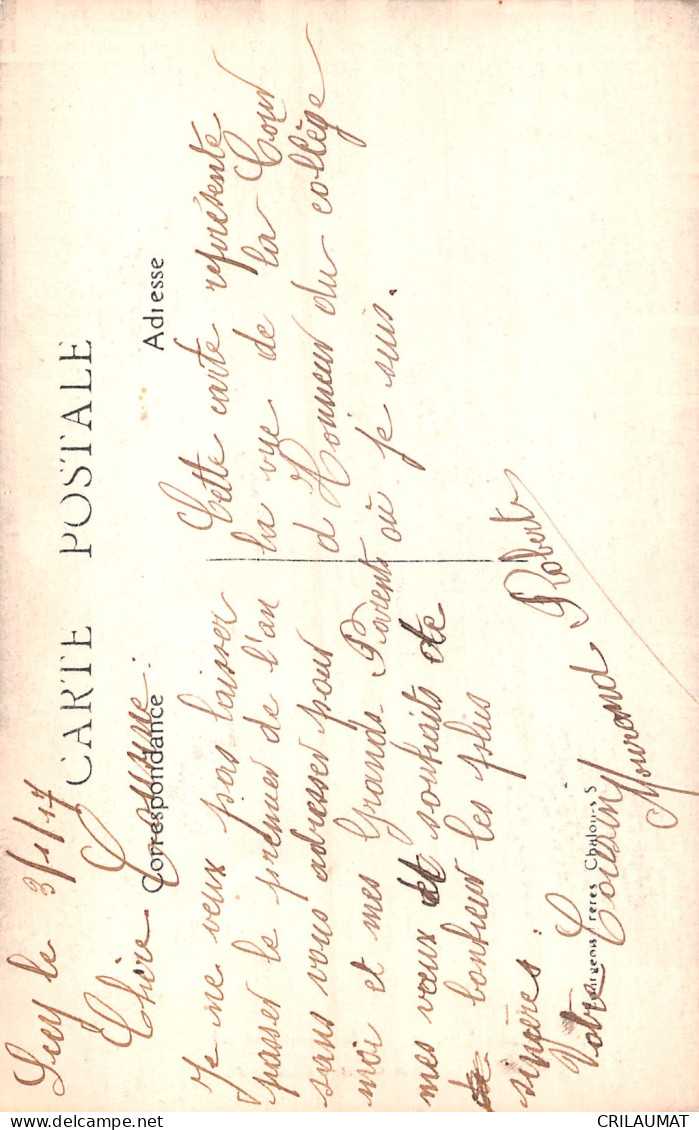 CARTE POSTALE
Correspondance
Adresse
le 3/1/17
Chère Cousine :
Je ne veux pas laisser
passer le premier de l'an
sans vous adresser pour
moi et mes Grands Parents
mes vœux et souhaits de
de bonheur les plus
sincères.
Votre Cousin
Mourand Robert
Cette carte représente
la vue de la Cour
d'Honneur du collège
où je suis.
Bourgeois Frères Chalon-s-S
CRILAUMAT